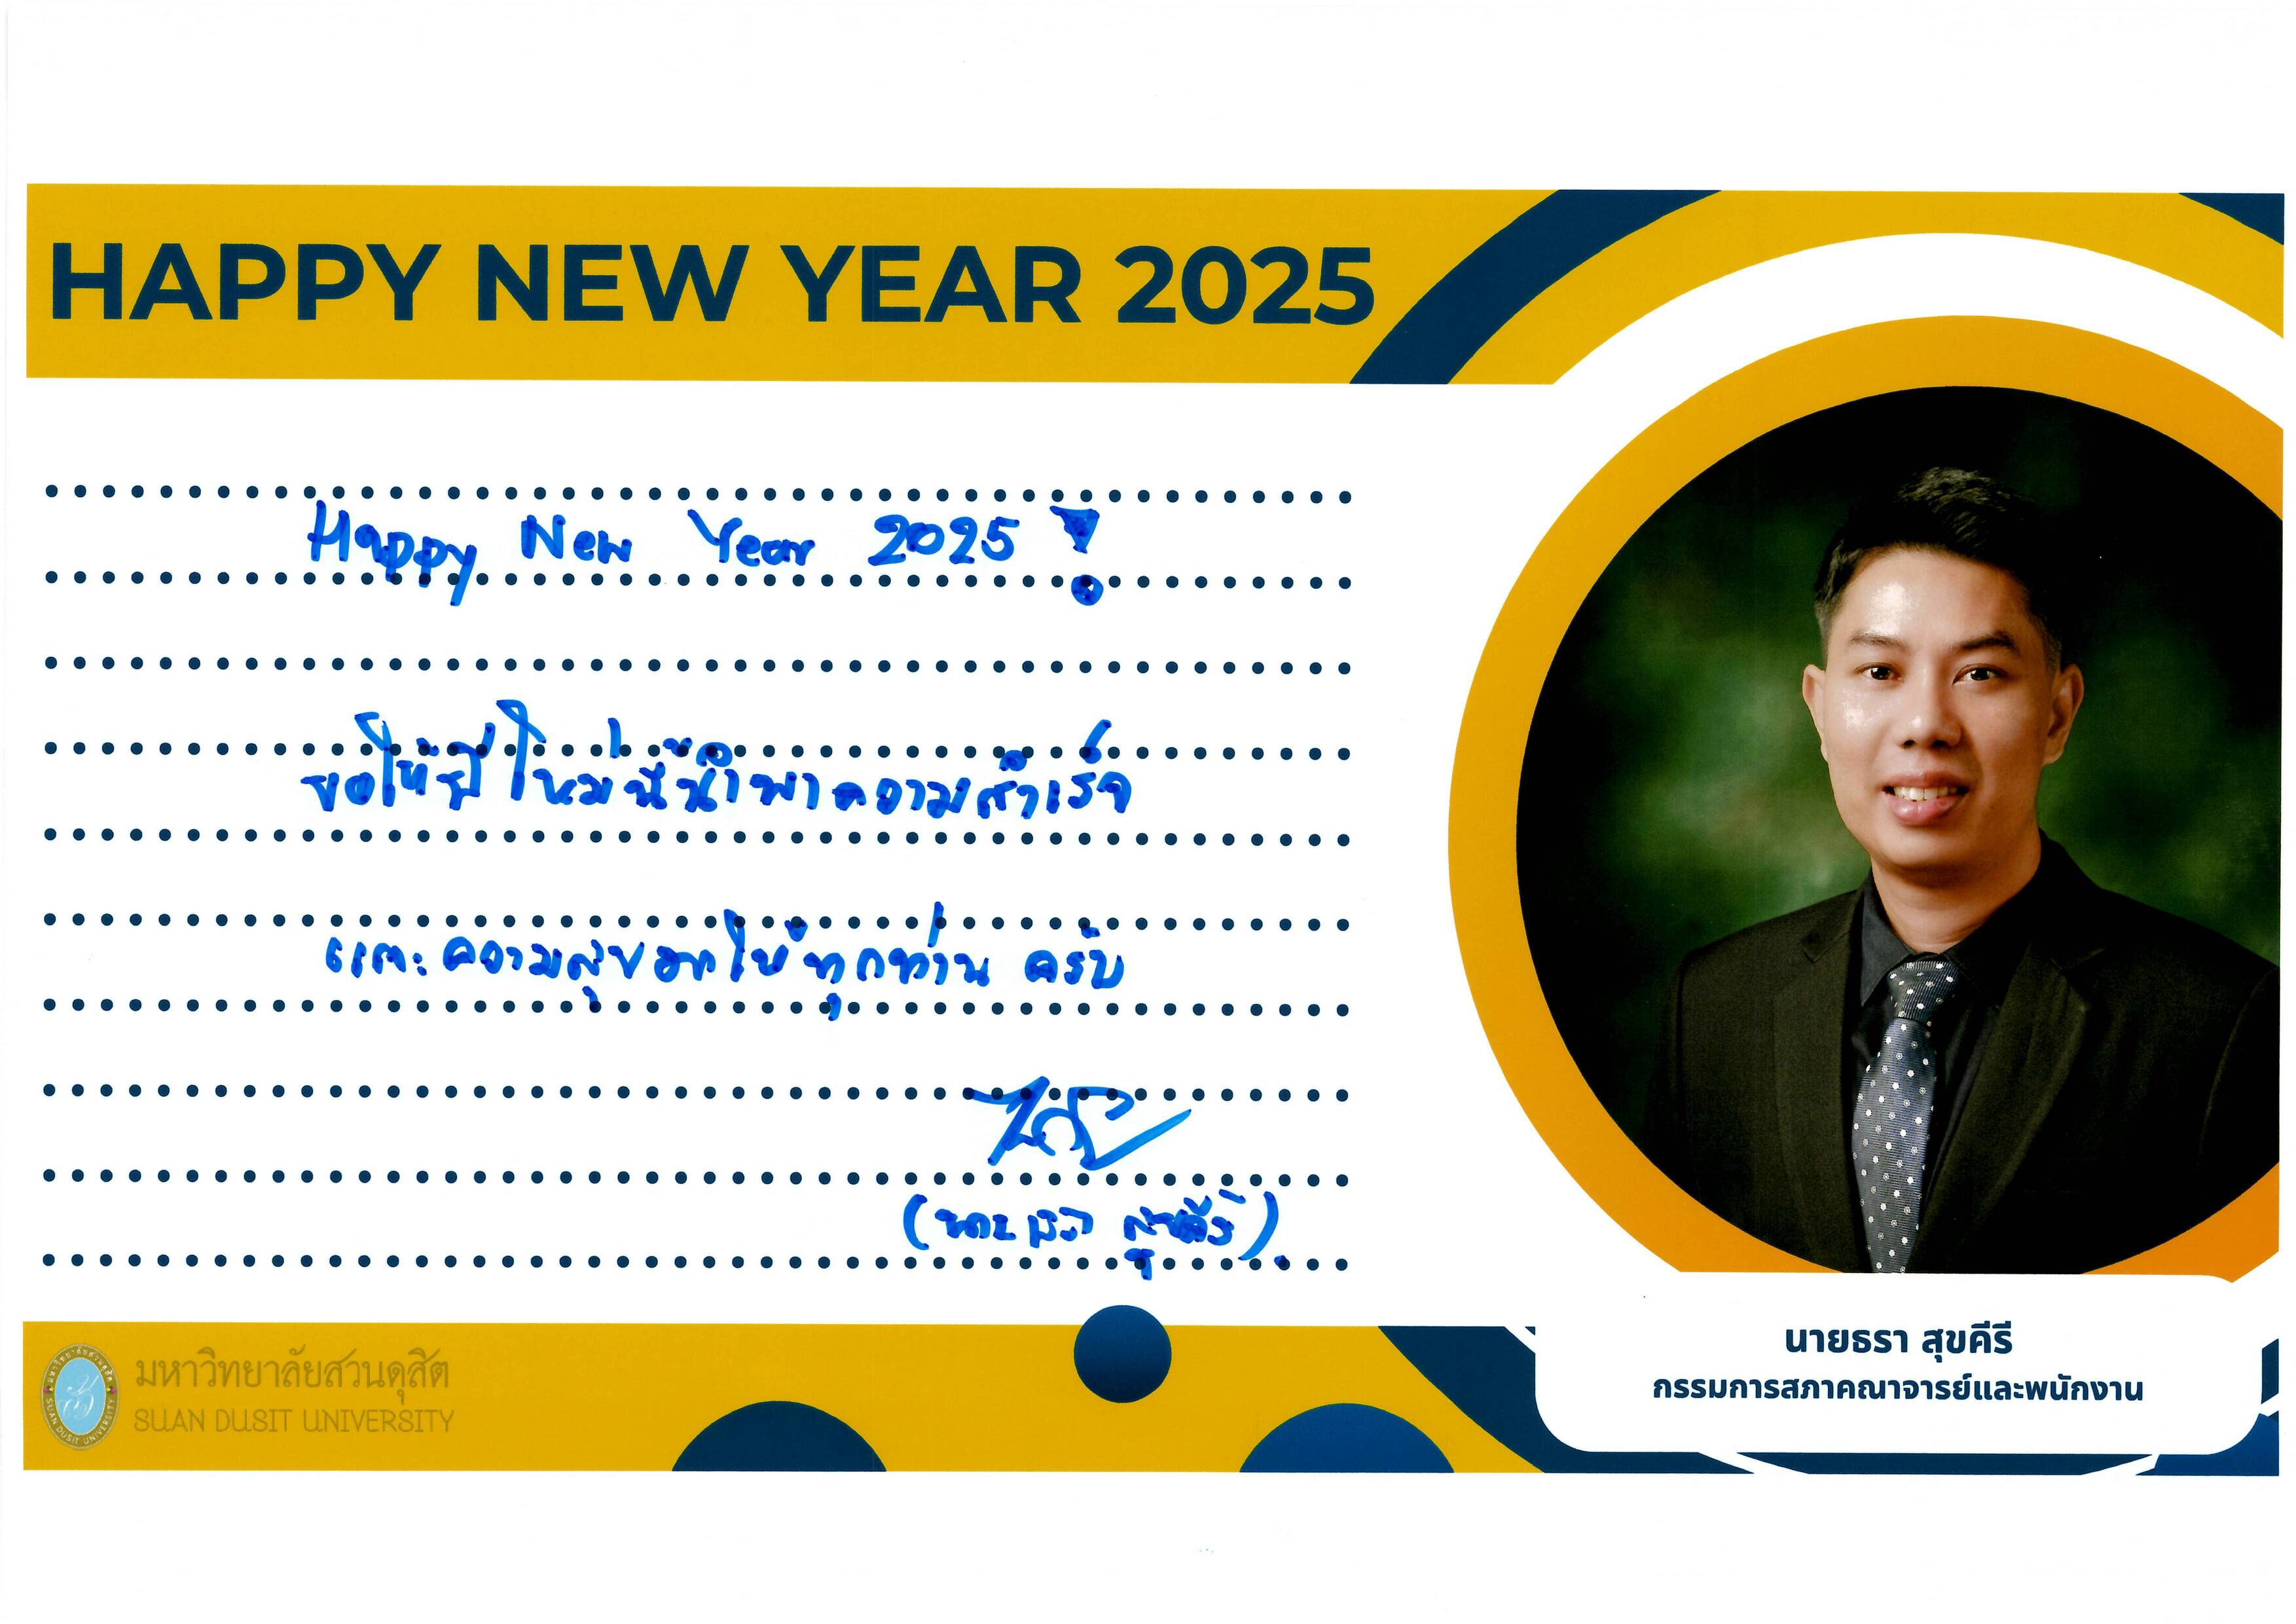 HAPPY NEW YEAR 2025
Happy New Year 2025 !
ขอให้ปีใหม่นี้นำพาความสำเร็จ
และความสุขมาให้ทุกท่าน ครับ
(นายธรา สุขคีรี).
นายธรา สุขคีรี
กรรมการสภาคณาจารย์และพนักงาน
มหาวิทยาลัยสวนดุสิต
SUAN DUSIT UNIVERSITY